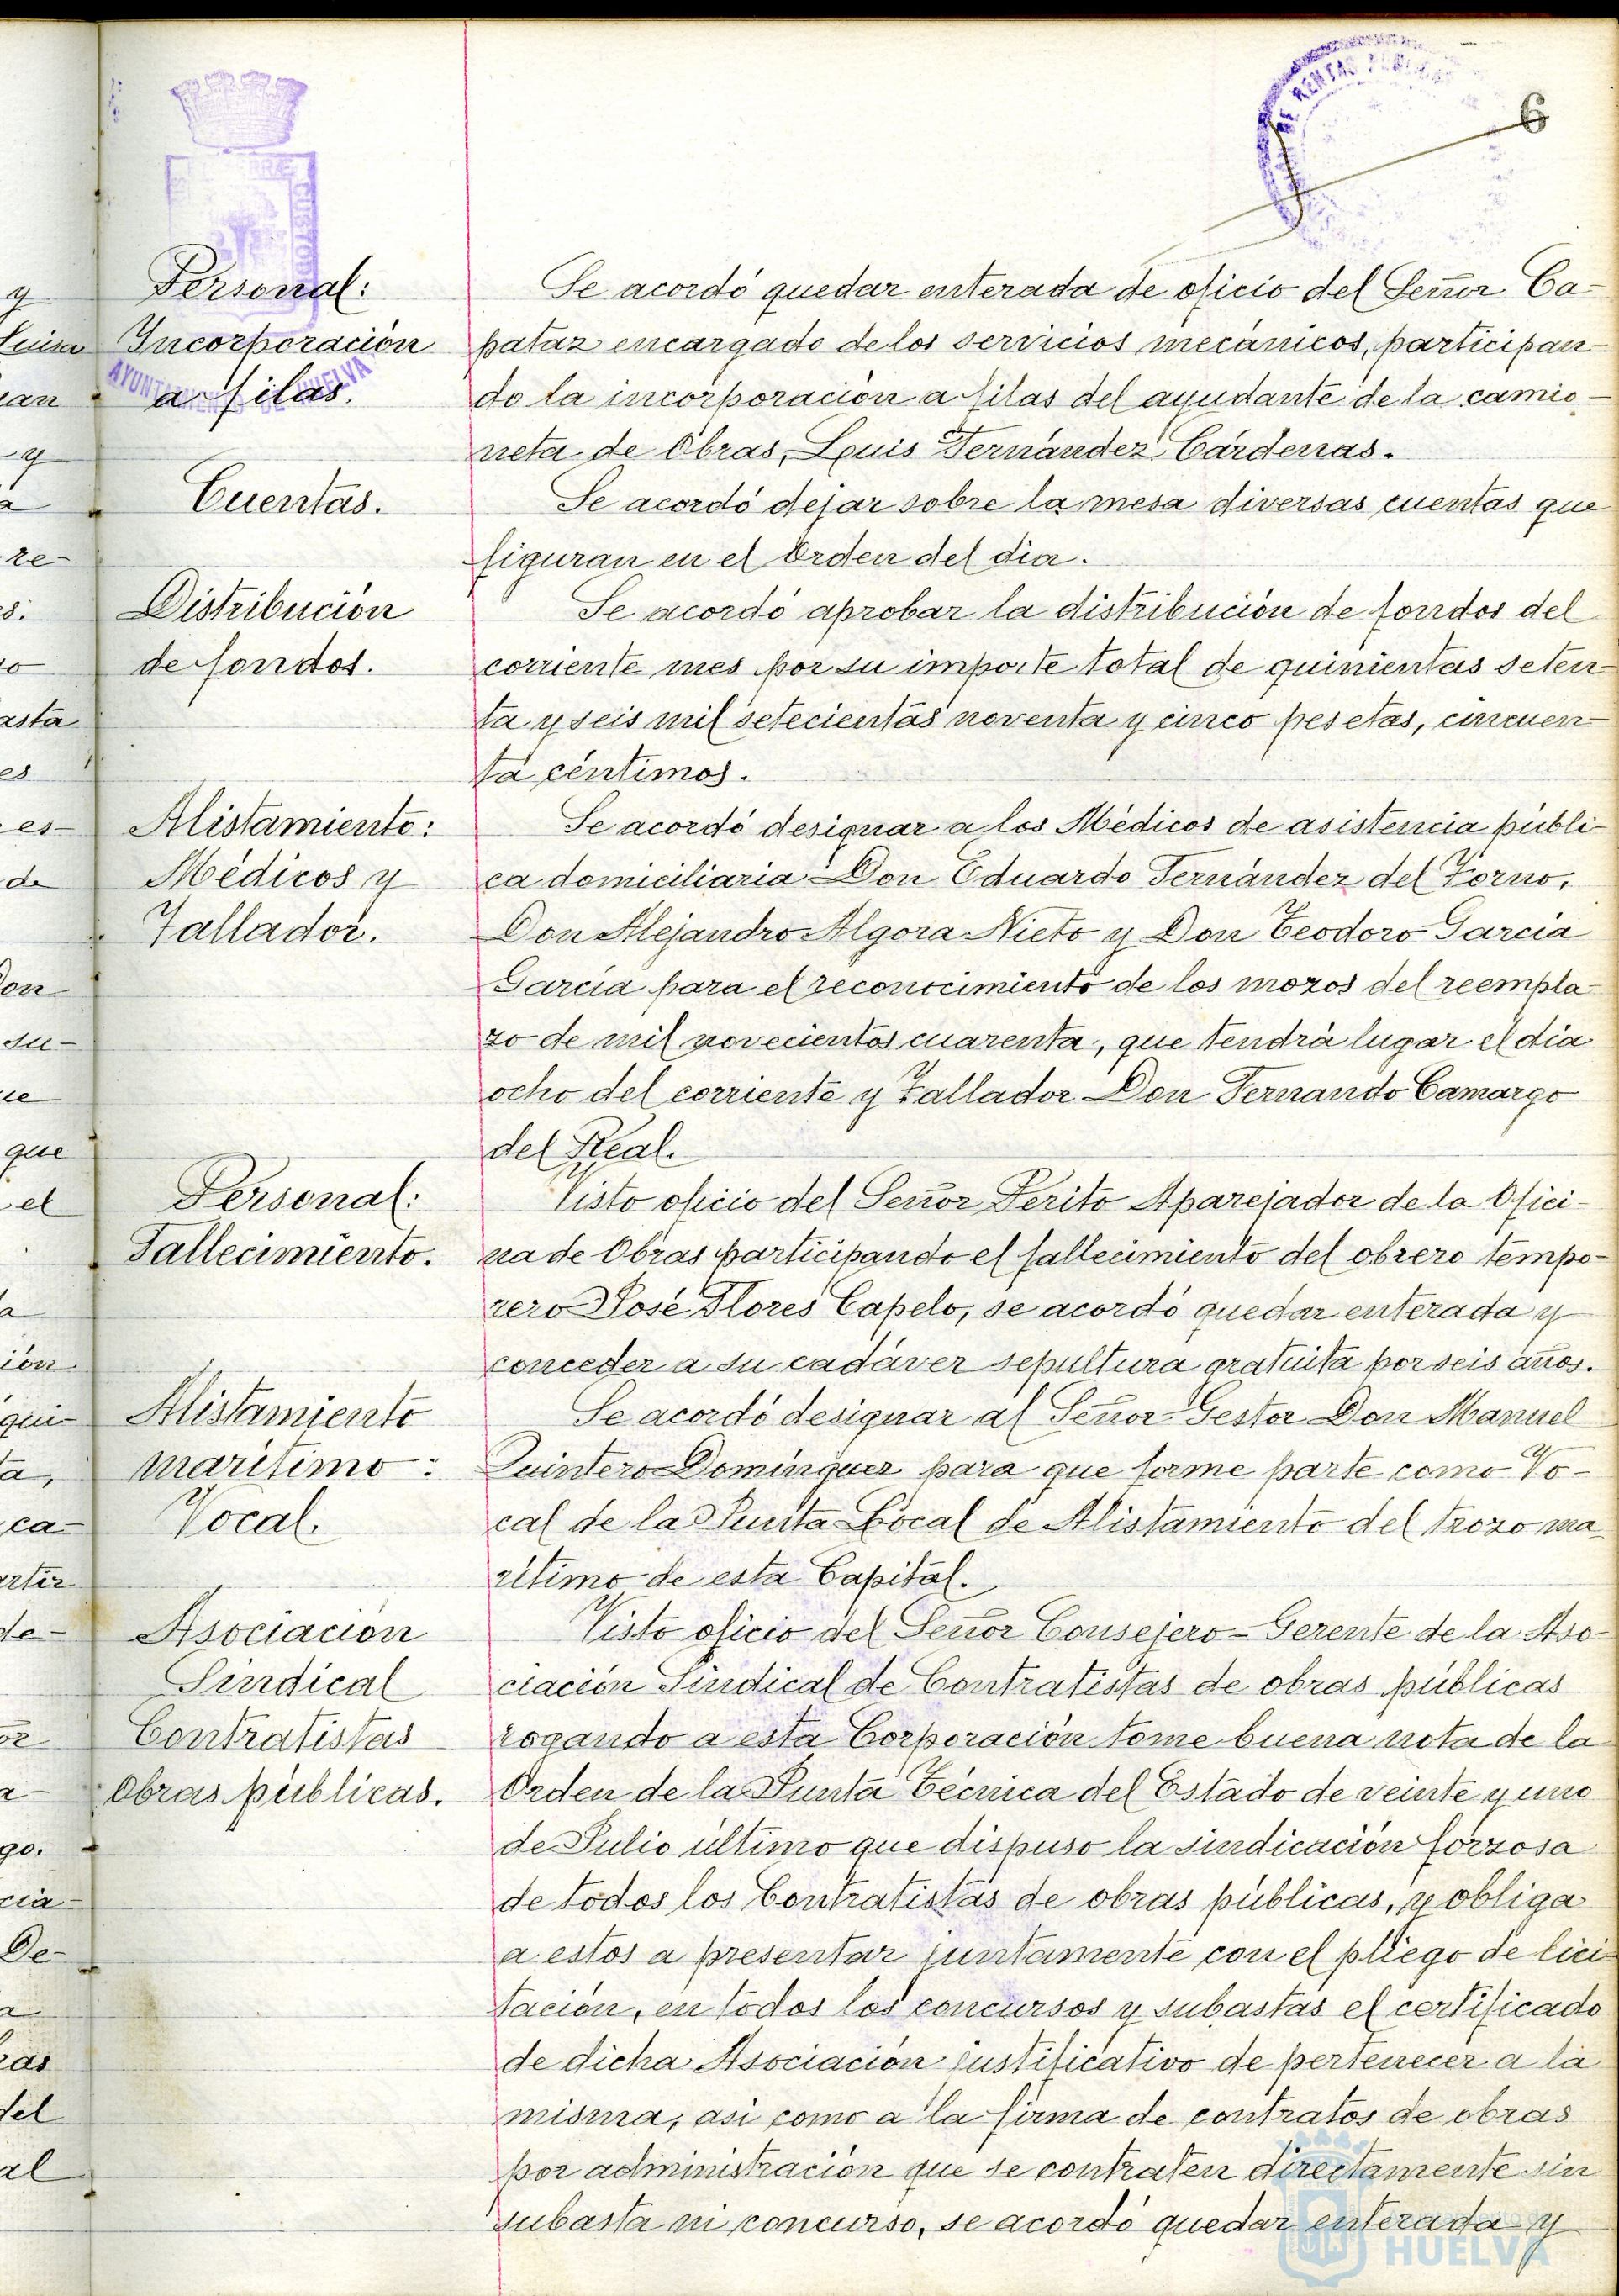 6
Personal:
Incorporación
a filas.
Se acordó quedar enterada de oficio del Señor Ca-
pataz encargado de los servicios mecánicos, participan-
do la incorporación a filas del ayudante de la camio-
neta de Obras, Luis Fernández Cárdenas.
Cuentas.
Se acordó dejar sobre la mesa diversas cuentas que
figuran en el Orden del dia.
Distribución
de fondos.
Se acordó aprobar la distribución de fondos del
corriente mes por su importe total de quinientas seten-
ta y seis mil setecientas noventa y cinco pesetas, cincuen-
ta céntimos.
Alistamiento:
Médicos y
Tallador.
Se acordó designar a los Médicos de asistencia públi-
ca domiciliaria Don Eduardo Fernández del Torno,
Don Alejandro Algora Nieto y Don Teodoro García
García para el reconocimiento de los mozos del reempla-
zo de mil novecientos cuarenta, que tendrá lugar el día
ocho del corriente y Tallador Don Fernando Camargo
del Real.
Personal:
Fallecimiento.
Visto oficio del Señor Perito Aparejador de la Ofici-
na de Obras participando el fallecimiento del obrero tempo-
rero José Flores Capelo, se acordó quedar enterada y
conceder a su cadáver sepultura gratuita por seis años.
Alistamiento
marítimo:
Vocal.
Se acordó designar al Señor Gestor Don Manuel
Quintero Domínguez para que forme parte como Vo-
cal de la Junta Local de Alistamiento del trozo ma-
rítimo de esta Capital.
Asociación
Sindical
Contratistas
Obras públicas.
Visto oficio del Señor Consejero-Gerente de la Aso-
ciación Sindical de Contratistas de obras públicas
rogando a esta Corporación tome buena nota de la
Orden de la Junta Técnica del Estado de veinte y uno
de Julio último que dispuso la sindicación forzosa
de todos los Contratistas de obras públicas, y obliga
a estos a presentar juntamente con el pliego de lici-
tación, en todos los concursos y subastas el certificado
de dicha Asociación justificativo de pertenecer a la
misma, asi como a la firma de contratos de obras
por administración que se contraten directamente sin
subasta ni concurso, se acordó quedar enterada y
AYUNTAMIENTO DE HUELVA
HUELVA